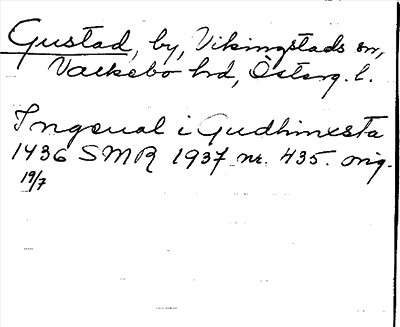 Gustad, by, Vikingstads sn,
Valkebo hd, Österg. l.
Ingeual i Gudhinxsta
1436 SMR 1937 nr. 435. orig.
19/7